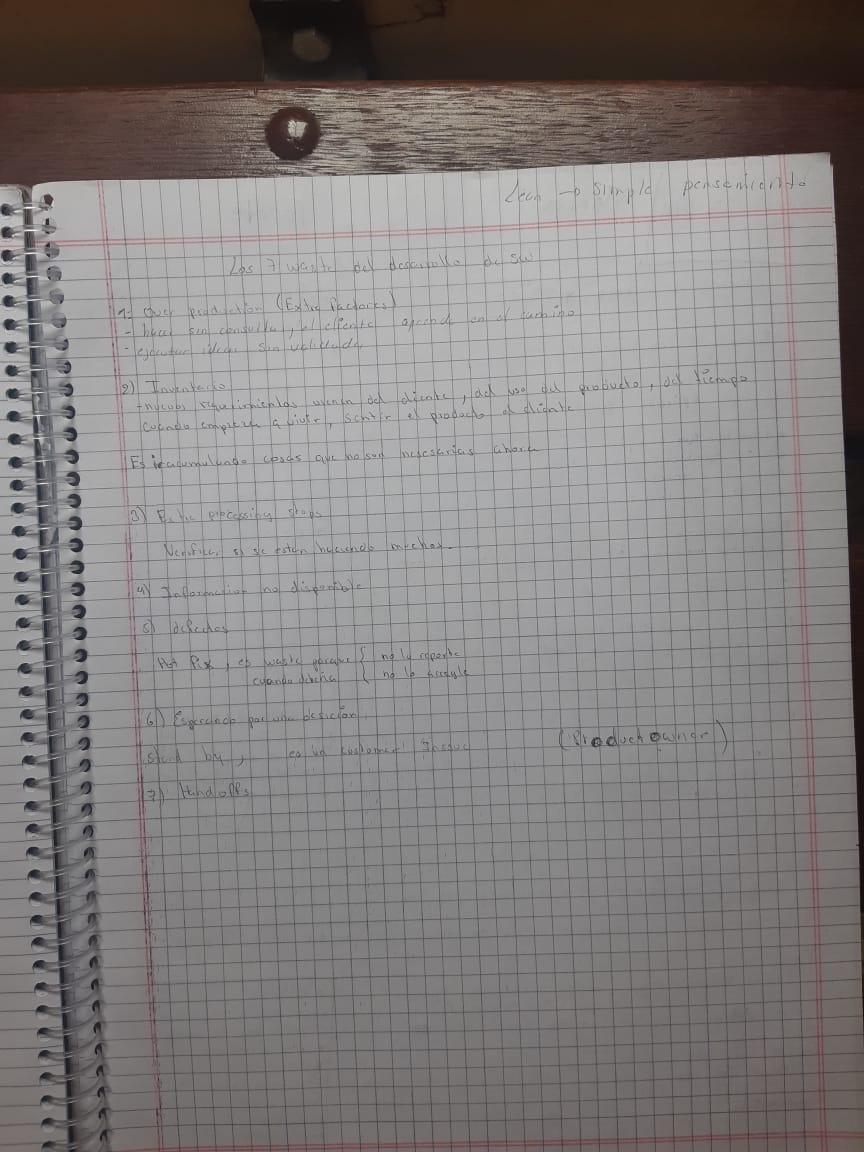 Lean → Simple pensamiento
Las 7 waste del desarrollo de sw
1- Over production (Extra Factores)
- hacer sin consulta, el cliente aprende en el camino
- ejecutar ideas sin
2) Inventario
nuevos requirimientos vienen del cliente, del uso del producto, del tiempo
cuando empieza a vivir, sentir el producto el cliente
Es ir acumulando cosas que no son nescesarias ahora
3) Extra processing steps
Verificar si se estan haciendo muchos
4) Information no disponible
5) defectos
Hot fix, es waste porque { no lo reporte
cuando debería { no lo arregle
6) Esperando por una desición
stand by, es un customer Issue (Product owner)
7) Handoffs